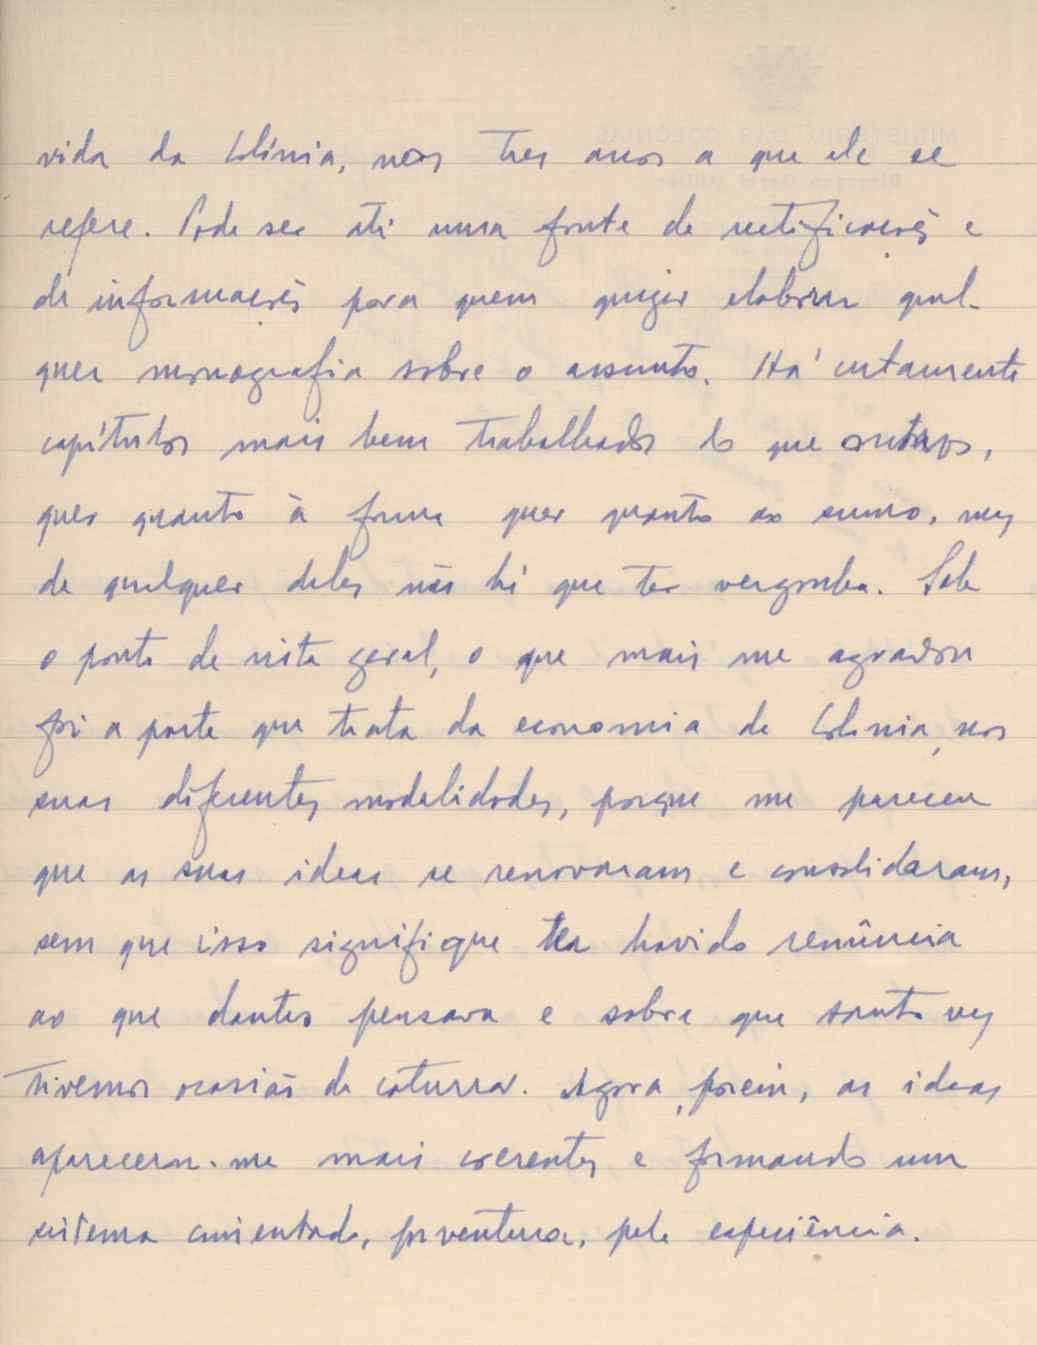 vida da Colónia, nos tres anos a que ele se
refere. Pode ser até uma fonte de rectificações e
de informações para quem quizer elaborar qual-
quer monografia sobre o assunto. Há certamente
capítulos mais bem trabalhados do que outros,
quer quanto à forma quer quanto ao sumo, mas
de qualquer deles não há que ter vergonha. Sob
o ponto de vista geral, o que mais me agradou
foi a parte que trata da economia da Colonia, nas
suas diferentes modalidades, porque me pareceu
que as suas ideas se renovaram e consolidaram,
sem que isso signifique ter havido renúncia
ao que dantes pensava e sobre que tanta vez
tivemos ocasião de caturrar. Agora, porém, as ideas
aparecem-me mais coerentes e formando um
sistema cimentado, porventura, pela experiência.